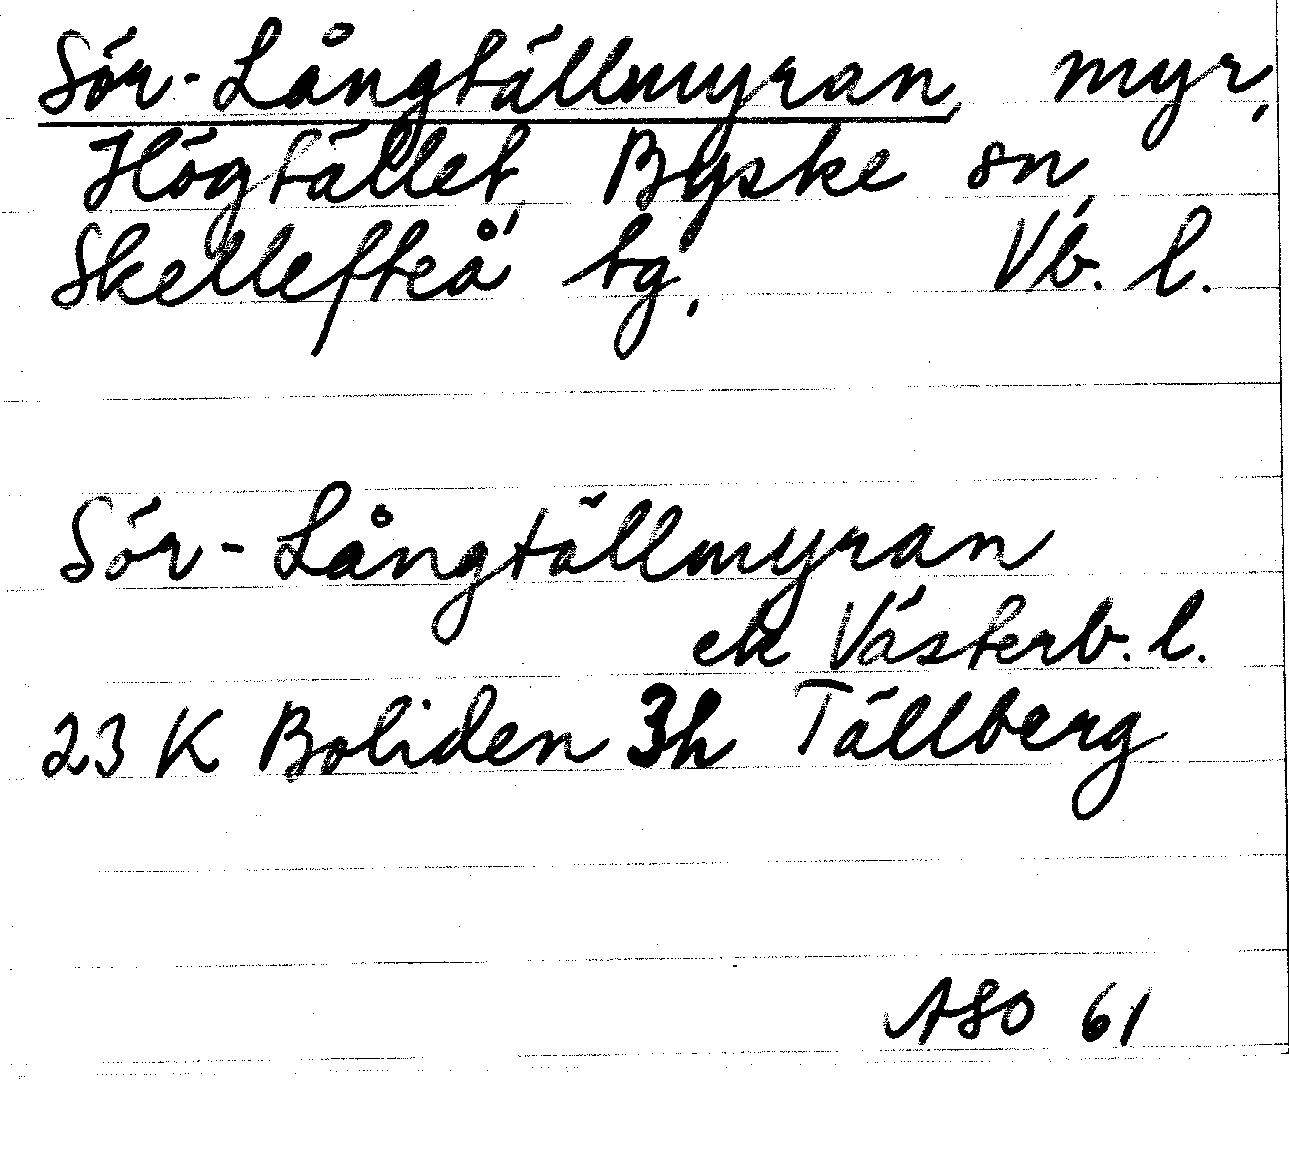 Sör-Långtällmyran, myr,
Högtället, Byske sn,
Skellefteå tg, Vb. l.
Sör-Långtällmyran
ek Västerb. l.
23 K Boliden 3h Tällberg
ASO 61